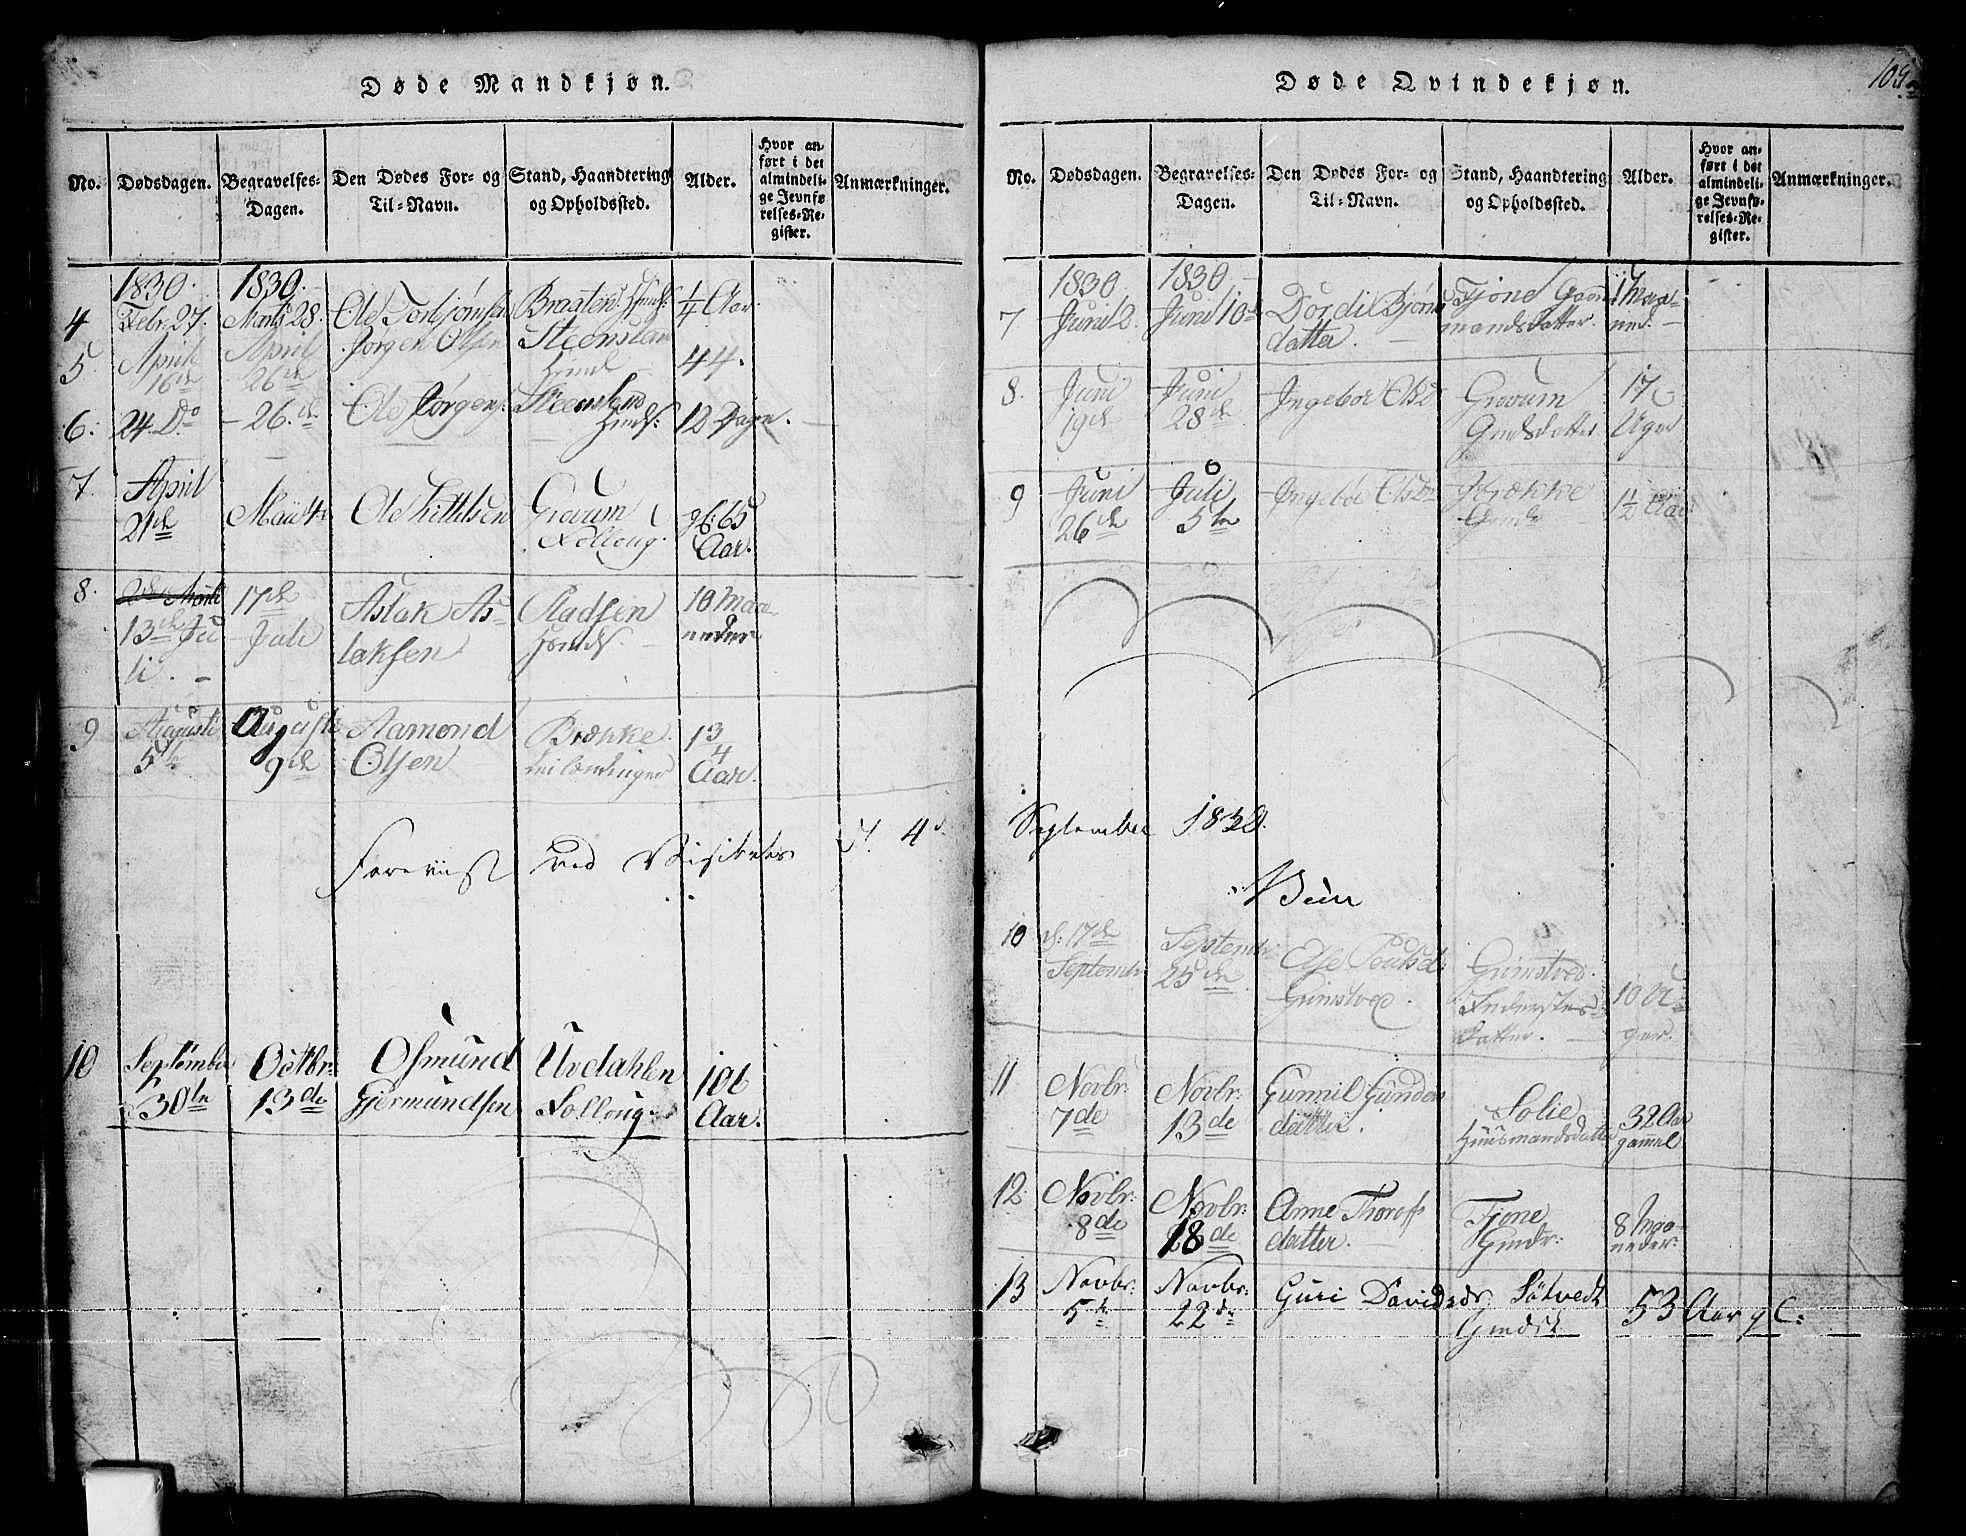 Døde Mandkjøn.
No. Dødsdagen. Begravelses-Dagen. Den Dødes For- og Til-Navn. Stand, Haandtering og Opholdssted. Alder. Hvor anført i det almindelige Jevnførelses-Register. Anmærkninger.
1830. 1830.
4 Febr. 27. Marts 28. Ole Torbjørnsen Braaten Huusf: 1/4 Aar.
5. April 16de April 26de Jørgen Olsen Steensland 44.
6. 24. Do – 26.de Ole Jørgens: Steensland 12 Dage.
7. April 21de Maii 4de Ole Kittilsen Gravum Follaug. gl: 65 Aar.
8. 13de Juli. – 17de Juli Aslak Aslaksen 10 Maaneder
9 Augusti 5te Auguste 9de Aamond Olsen Brække 1 3/4 Aar.
Foreviist ved Visitats d. 4d
10 September 30te Octbr: 13de Osmund Gjermundsen Uvdahlen Follaug. 106 Aar.
Døde Qvindekjøn.
109
No. Dødsdagen. Begravelses-Dagen. Den Dødes For- og Til-Navn. Stand, Haandtering og Opholdssted. Alder. Hvor anført i det almindelige Jevnførelses-Register. Anmærkninger.
1830. 1830
7. Juni 2. Juni 10de Dordi Bjørns datter. Fjone mandsdatter. Maaned.
8. Juni 19de Juni 28de Ingebor Olsd Gravum Gmdsdatter 17 Uger
9 Juni 26de Juli 5te Ingebor Olsdr Brække 1 1/2 Aar
September 1830.
10 d: 17de Septembr Septembr 25de Else Poulsd: Grimstved. Grimstved. datter. 10 Uger.
11 Novbr: 7de Novbr: 13de Gunnil Gundersdatter. Solie Huusmandsdatter 32 Aar gammel
12. Novbr: 8de Novbr: 18de Anne Thorofsdatter. Fjone Gmdr: 8 Maaneder.
13 Novbr: 5te Novbr: 22de Guri Davidsdr: Søtvedt 53 Aar gl: